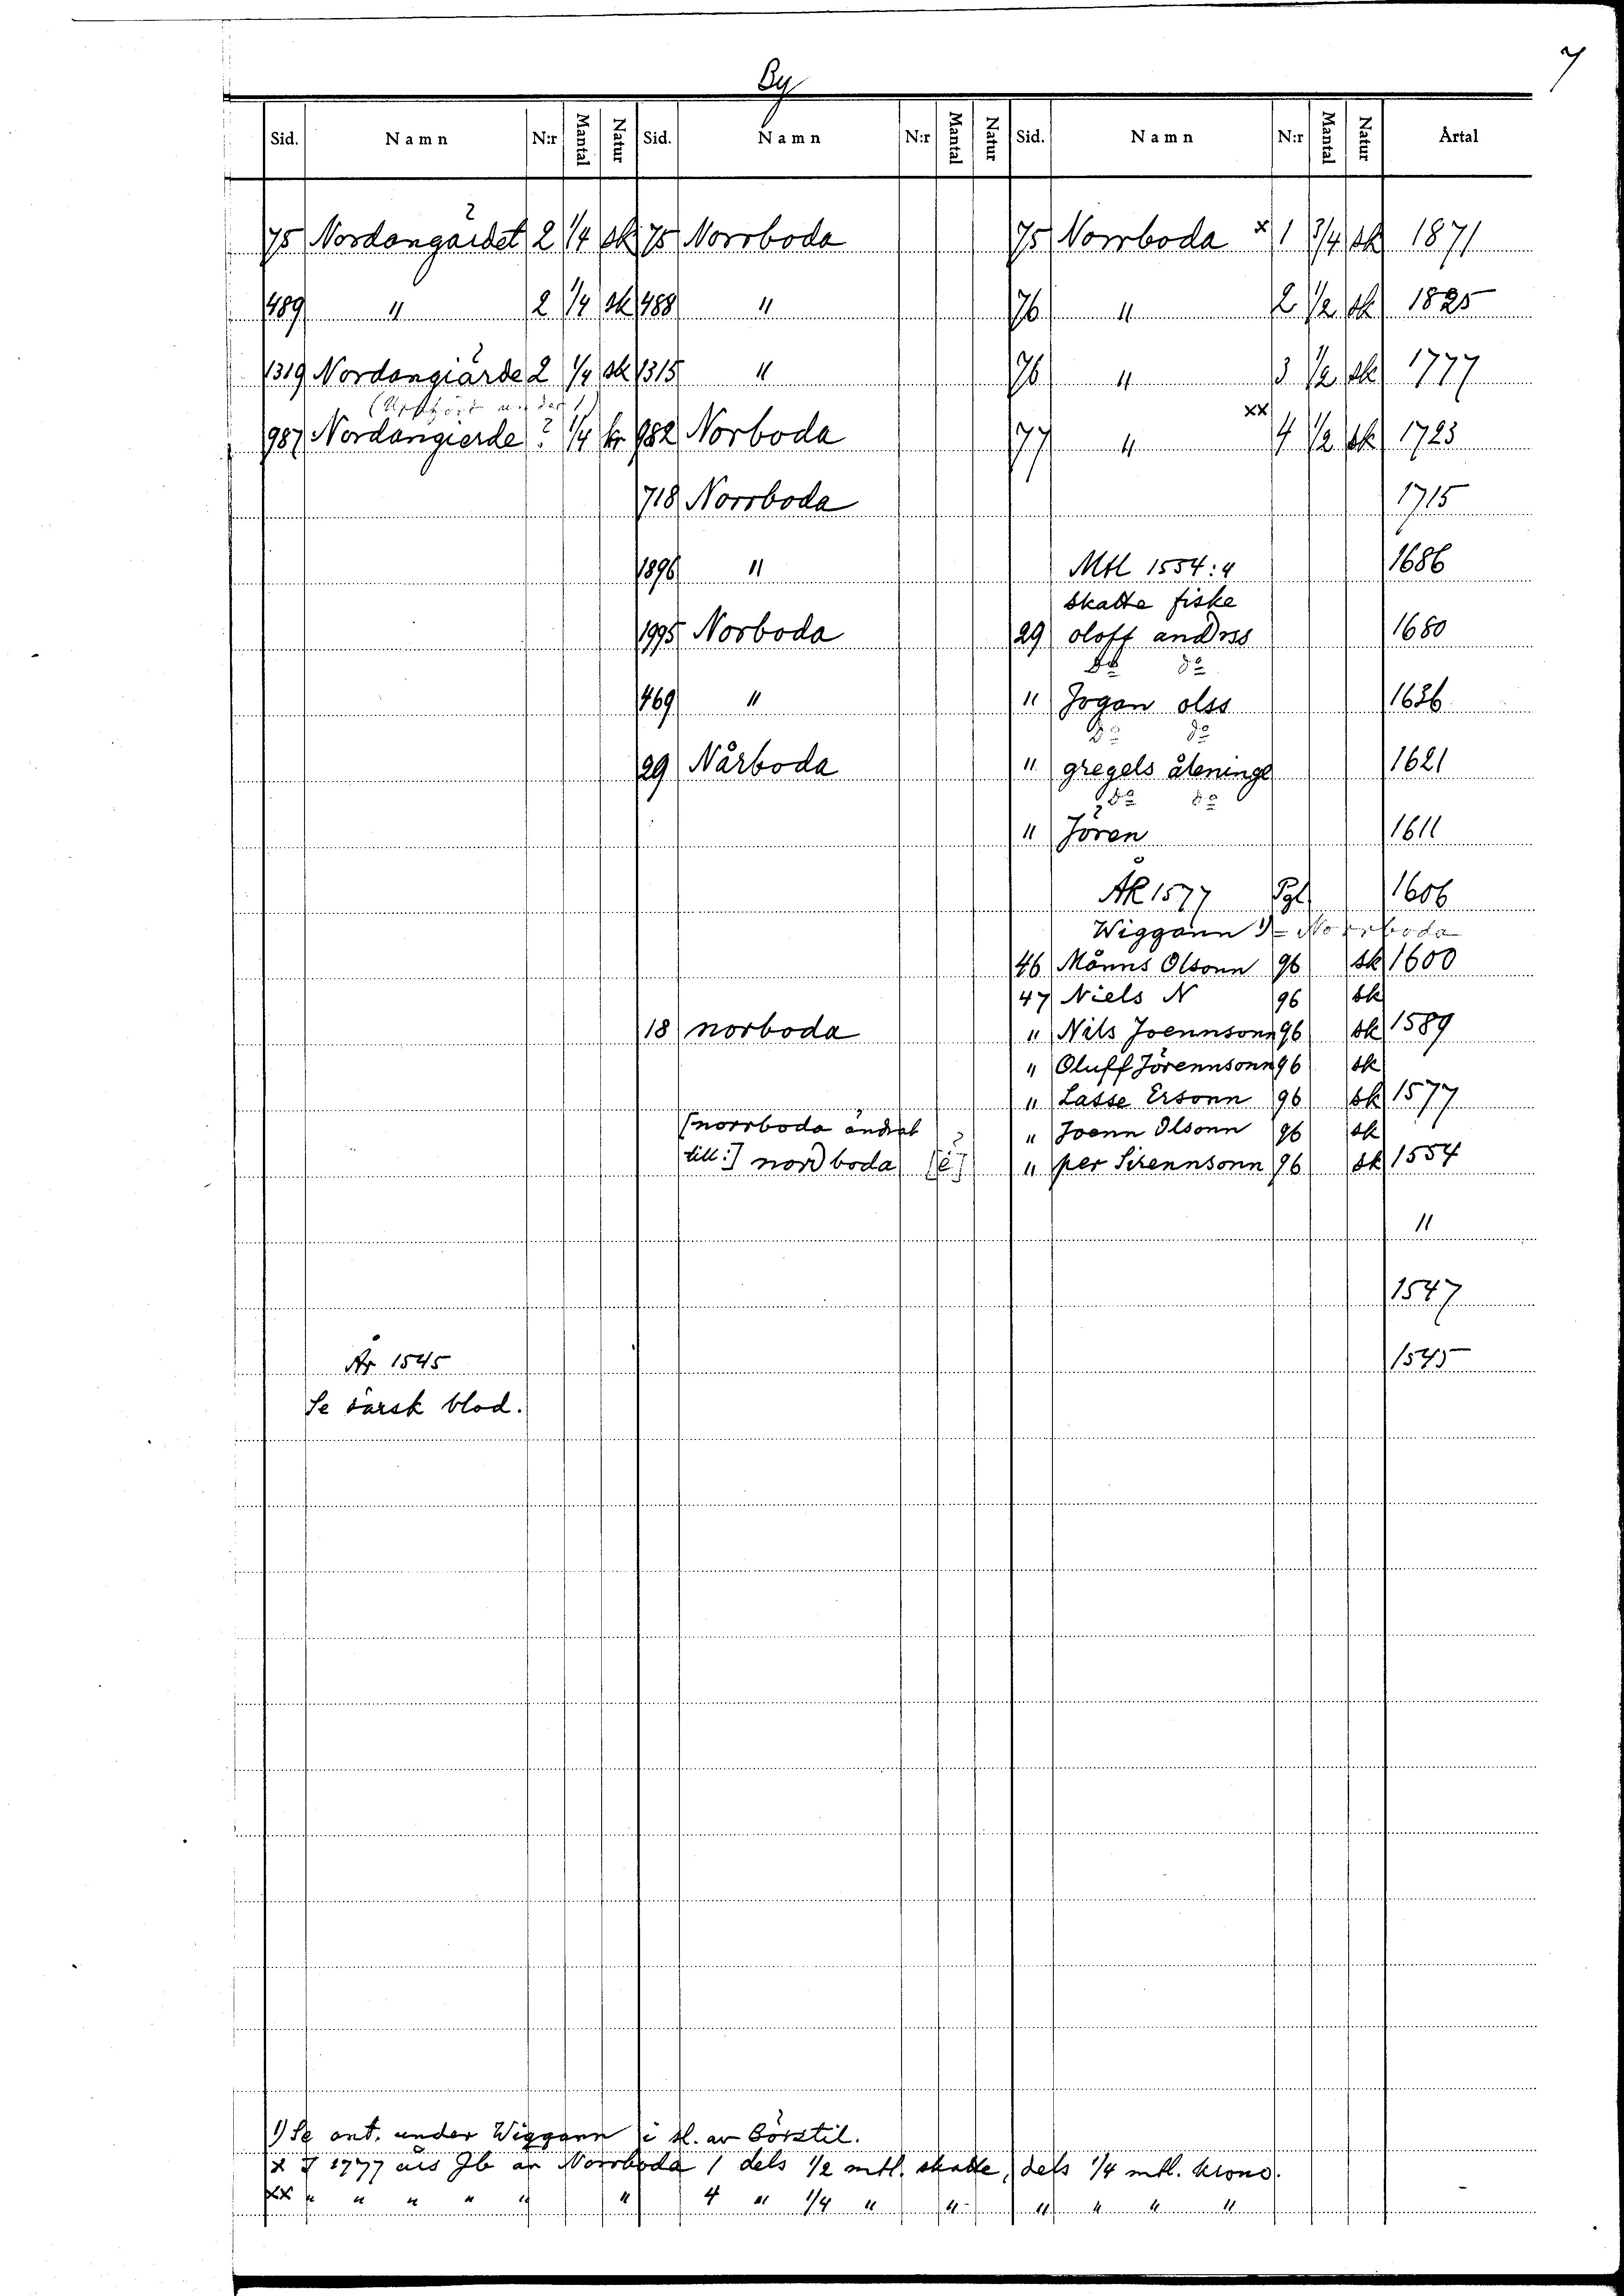 7
By
Sid. Namn N:r Mantal Natur Sid. Namn N:r Mantal Natur Sid. Namn N:r Mantal Natur Årtal
75 Nordangärdet 2 1/4 sk 75 Norrboda 75 Norrboda x 1 3/4 sk 1871
489 " 2 1/4 sk 488 " 76 " 2 1/2 sk 1825
1319 Nordangiärde 2 1/4 sk 1315 " 76 " 3 1/2 sk 1777
(Uppfört under 1)
987 Nordangierde ? 1/4 kr 982 Norboda 77 " xx 4 1/2 sk 1723
718 Norrboda 1715
1896 " Mtl 1554:4 1686
skatte fiske
1995 Norboda 29 oloff andrss 1680
do do
469 " " Jogan olss 1636
do do
29 Nårboda " gregels åleninge 1621
do do
" Jören 1611
ÅR 1577 Pgl 1606
Wiggann 1) = Norrboda
46 Månns Olsonn 96 sk 1600
47 Niels N 96 sk
18 norboda " Nils Joennsonn 96 sk 1589
" Oluff Jörennsonn 96 sk
" Lasse Ersonn 96 sk 1577
[norrboda ändrat " Joenn Olsonn 96 sk
till:] nordboda [è?] " per Sirennsonn 96 sk 1554
"
1547
År 1545 1545
Se särsk blad.
1) Se ant. under Wiggann i sl. av Börstil.
x I 1777 års Jb är Norrboda 1 dels 1/2 mtl. skatte, dels 1/4 mtl. krono.
xx " " " " " " 4 " 1/4 " " " " " "